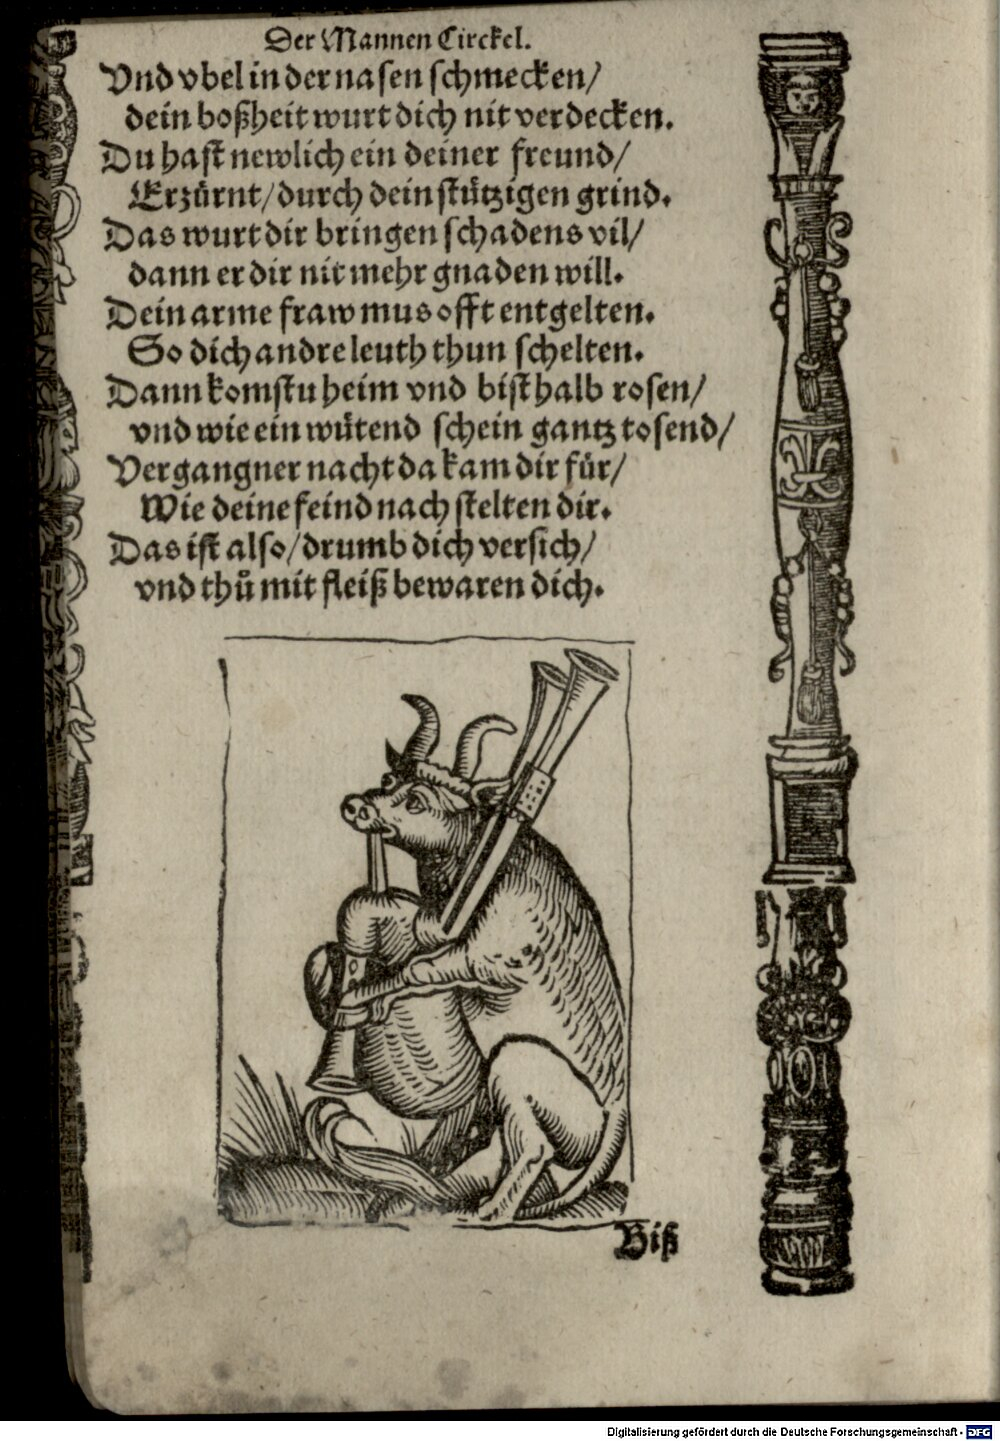 Der Mannen Circkel.
Vnd vbel in der nasen schmecken/
dein boßheit wurt dich nit verdecken.
Du hast newlich ein deiner freund/
Erzürnt/ durch dein stützigen grind.
Das wurt dir bringen schadens vil/
dann er dir nit mehr gnaden will.
Dein arme fraw mus offt entgelten.
So dich andre leuth thun schelten.
Dann komstu heim vnd bist halb rosen/
vnd wie ein wütend schein gantz tosend/
Vergangner nacht da kam dir für/
Wie deine feind nach stelten dir.
Das ist also/ drumb dich versich/
vnd thů mit fleiß bewaren dich.
Biß
Digitalisierung gefördert durch die Deutsche Forschungsgemeinschaft - DFG